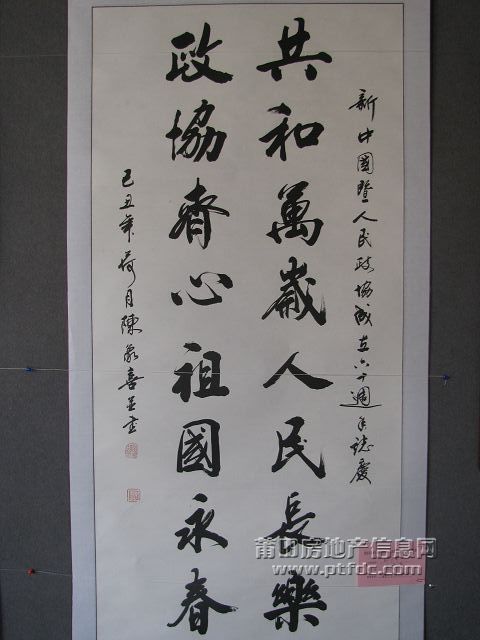 新中國暨人民政協成立六十週年誌慶
共和萬歲人民長樂
政協齊心祖國永春
己丑年荷月陳

莆田房地产信息网
www.ptfdc.com